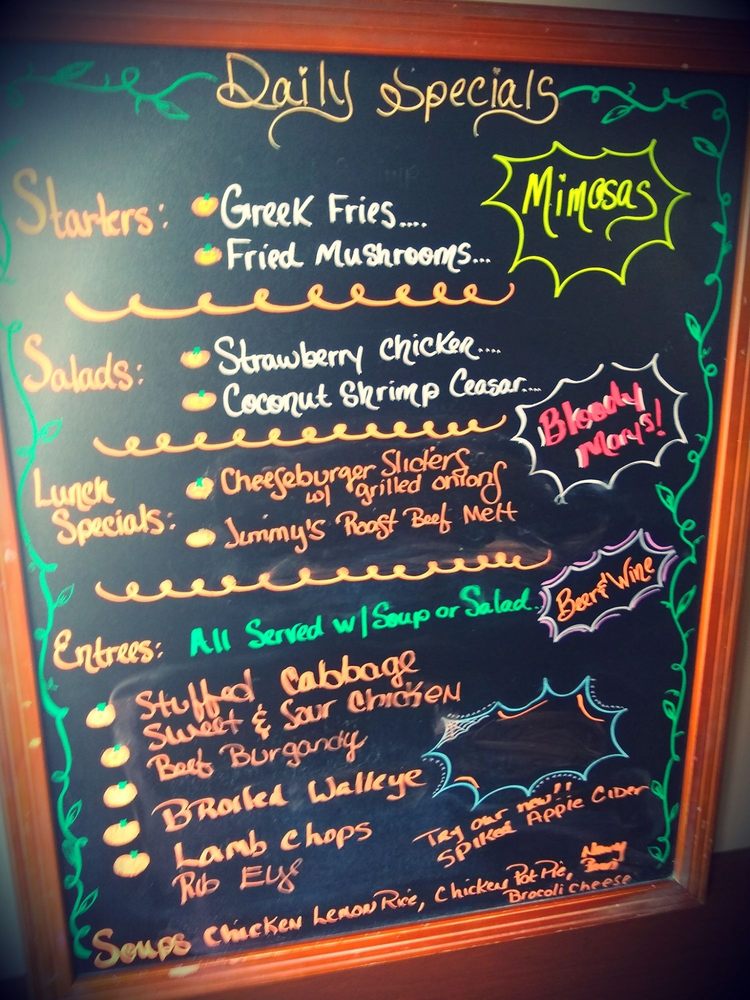 Daily Specials
Starters:
Greek Fries....
Fried Mushrooms...
Mimosas
Salads:
Strawberry chicken....
Coconut Shrimp Ceasar...
Bloody
Mary's!
Lunch
Specials:
Cheeseburger Sliders
w/ grilled onions
Jimmy's Roast Beef Melt
Beer & Wine
Entrees: All Served w/ Soup or Salad..
Stuffed Cabbage
Sweet & Sour Chicken
Beef Burgandy
Broiled Walleye
Lamb Chops
Rib Eye
Try our new!!
Spiked Apple Cider
Soups Chicken Lemon Rice, Chicken Pot Pie, Navy
Bean
Brocoli Cheese